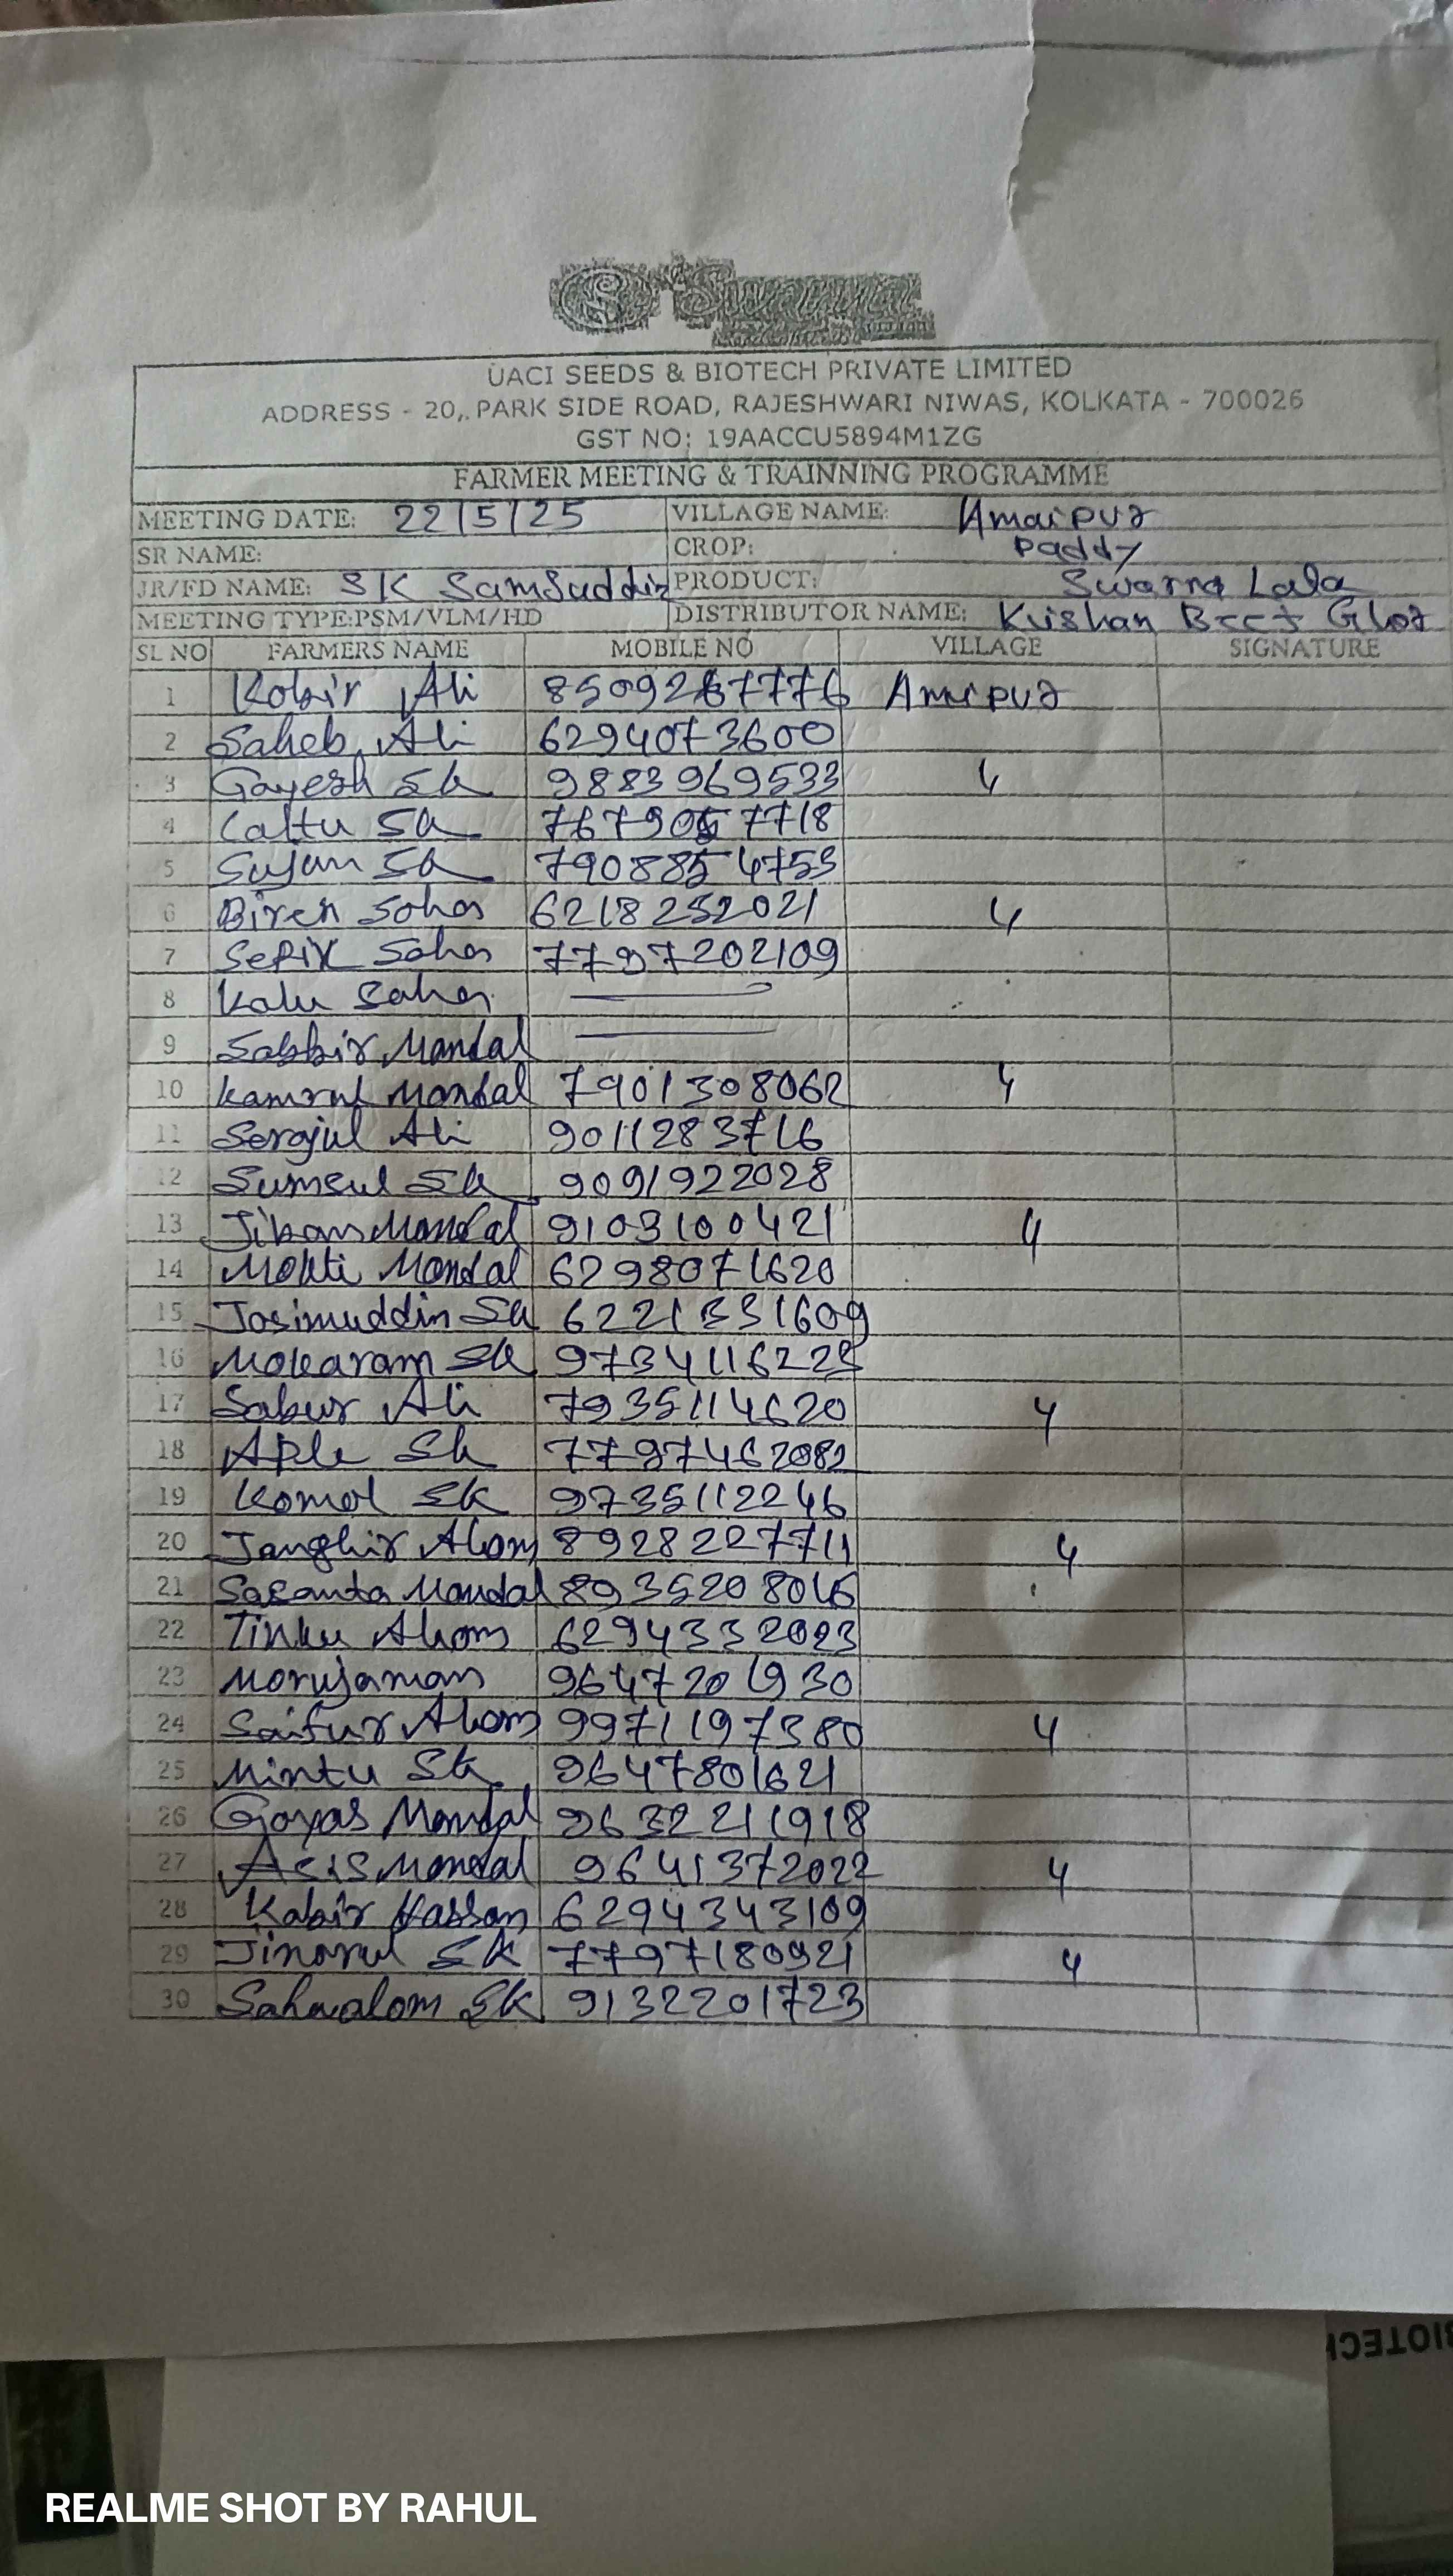 UACI SEEDS & BIOTECH PRIVATE LIMITED
ADDRESS - 20,. PARK SIDE ROAD, RAJESHWARI NIWAS, KOLKATA - 700026
GST NO: 19AACCU5894M1ZG
FARMER MEETING & TRAINNING PROGRAMME
MEETING DATE: 22/5/25 VILLAGE NAME: Amaipur
SR NAME: CROP: Paddy
JR/FD NAME: SK Samsuddin PRODUCT: Swarna Lala
MEETING TYPE:PSM/VLM/HD DISTRIBUTOR NAME: Krishan
SL NO FARMERS NAME MOBILE NO VILLAGE SIGNATURE
1 Kobir Ali Amipur
2 Saheb Ali 6294073600
3 Gayesh Sk 9883969533 4
4 Laltu Sk
5 Sujan Sk 7908854753
6 Biren Saha 6218252021 4
7 Saha 7797202109
8 Kalu Saha
9 Sabbir Mandal
10 Kamrul Mondal 7901308062 4
11 Serajul Ali 9011283716
12 Sumsul Sk 9091922028
13 Jiban Mondal 9103100421 4
14 Mokti Mondal 6298071620
15 Josimuddin Sk
16 Mokaram Sk
17 Sabur Ali 7935114620 4
18 Aple Sk 7797462082
19 Komol Sk 9735112246
20 Janghir Alom 8928227711 4
21 Sasanta Mondal
22 Tinku Alom 6294332023
23 Morujaman 9647201930
24 Saifur Alom 9971197380 4
25 Mintu Sk 9647801621
26 Goyas Mondal 9632211918
27 Asis Mondal 9641372022 4
28 Kabir Hassan 6294343109
29 Jinarul Sk 7797180921 4
30 Sahaalom Sk 9132201723
BIOTECH
REALME SHOT BY RAHUL